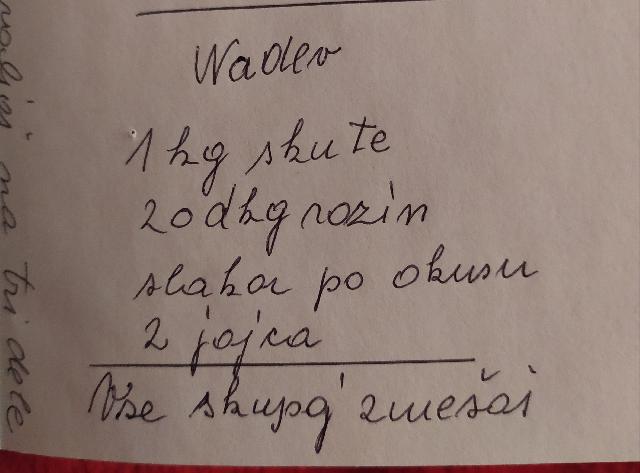 Nadev
1 kg skute
20 dkg rozin
slakor po okusu
2 jajca
Vse skupaj zmešaj
na tri dele